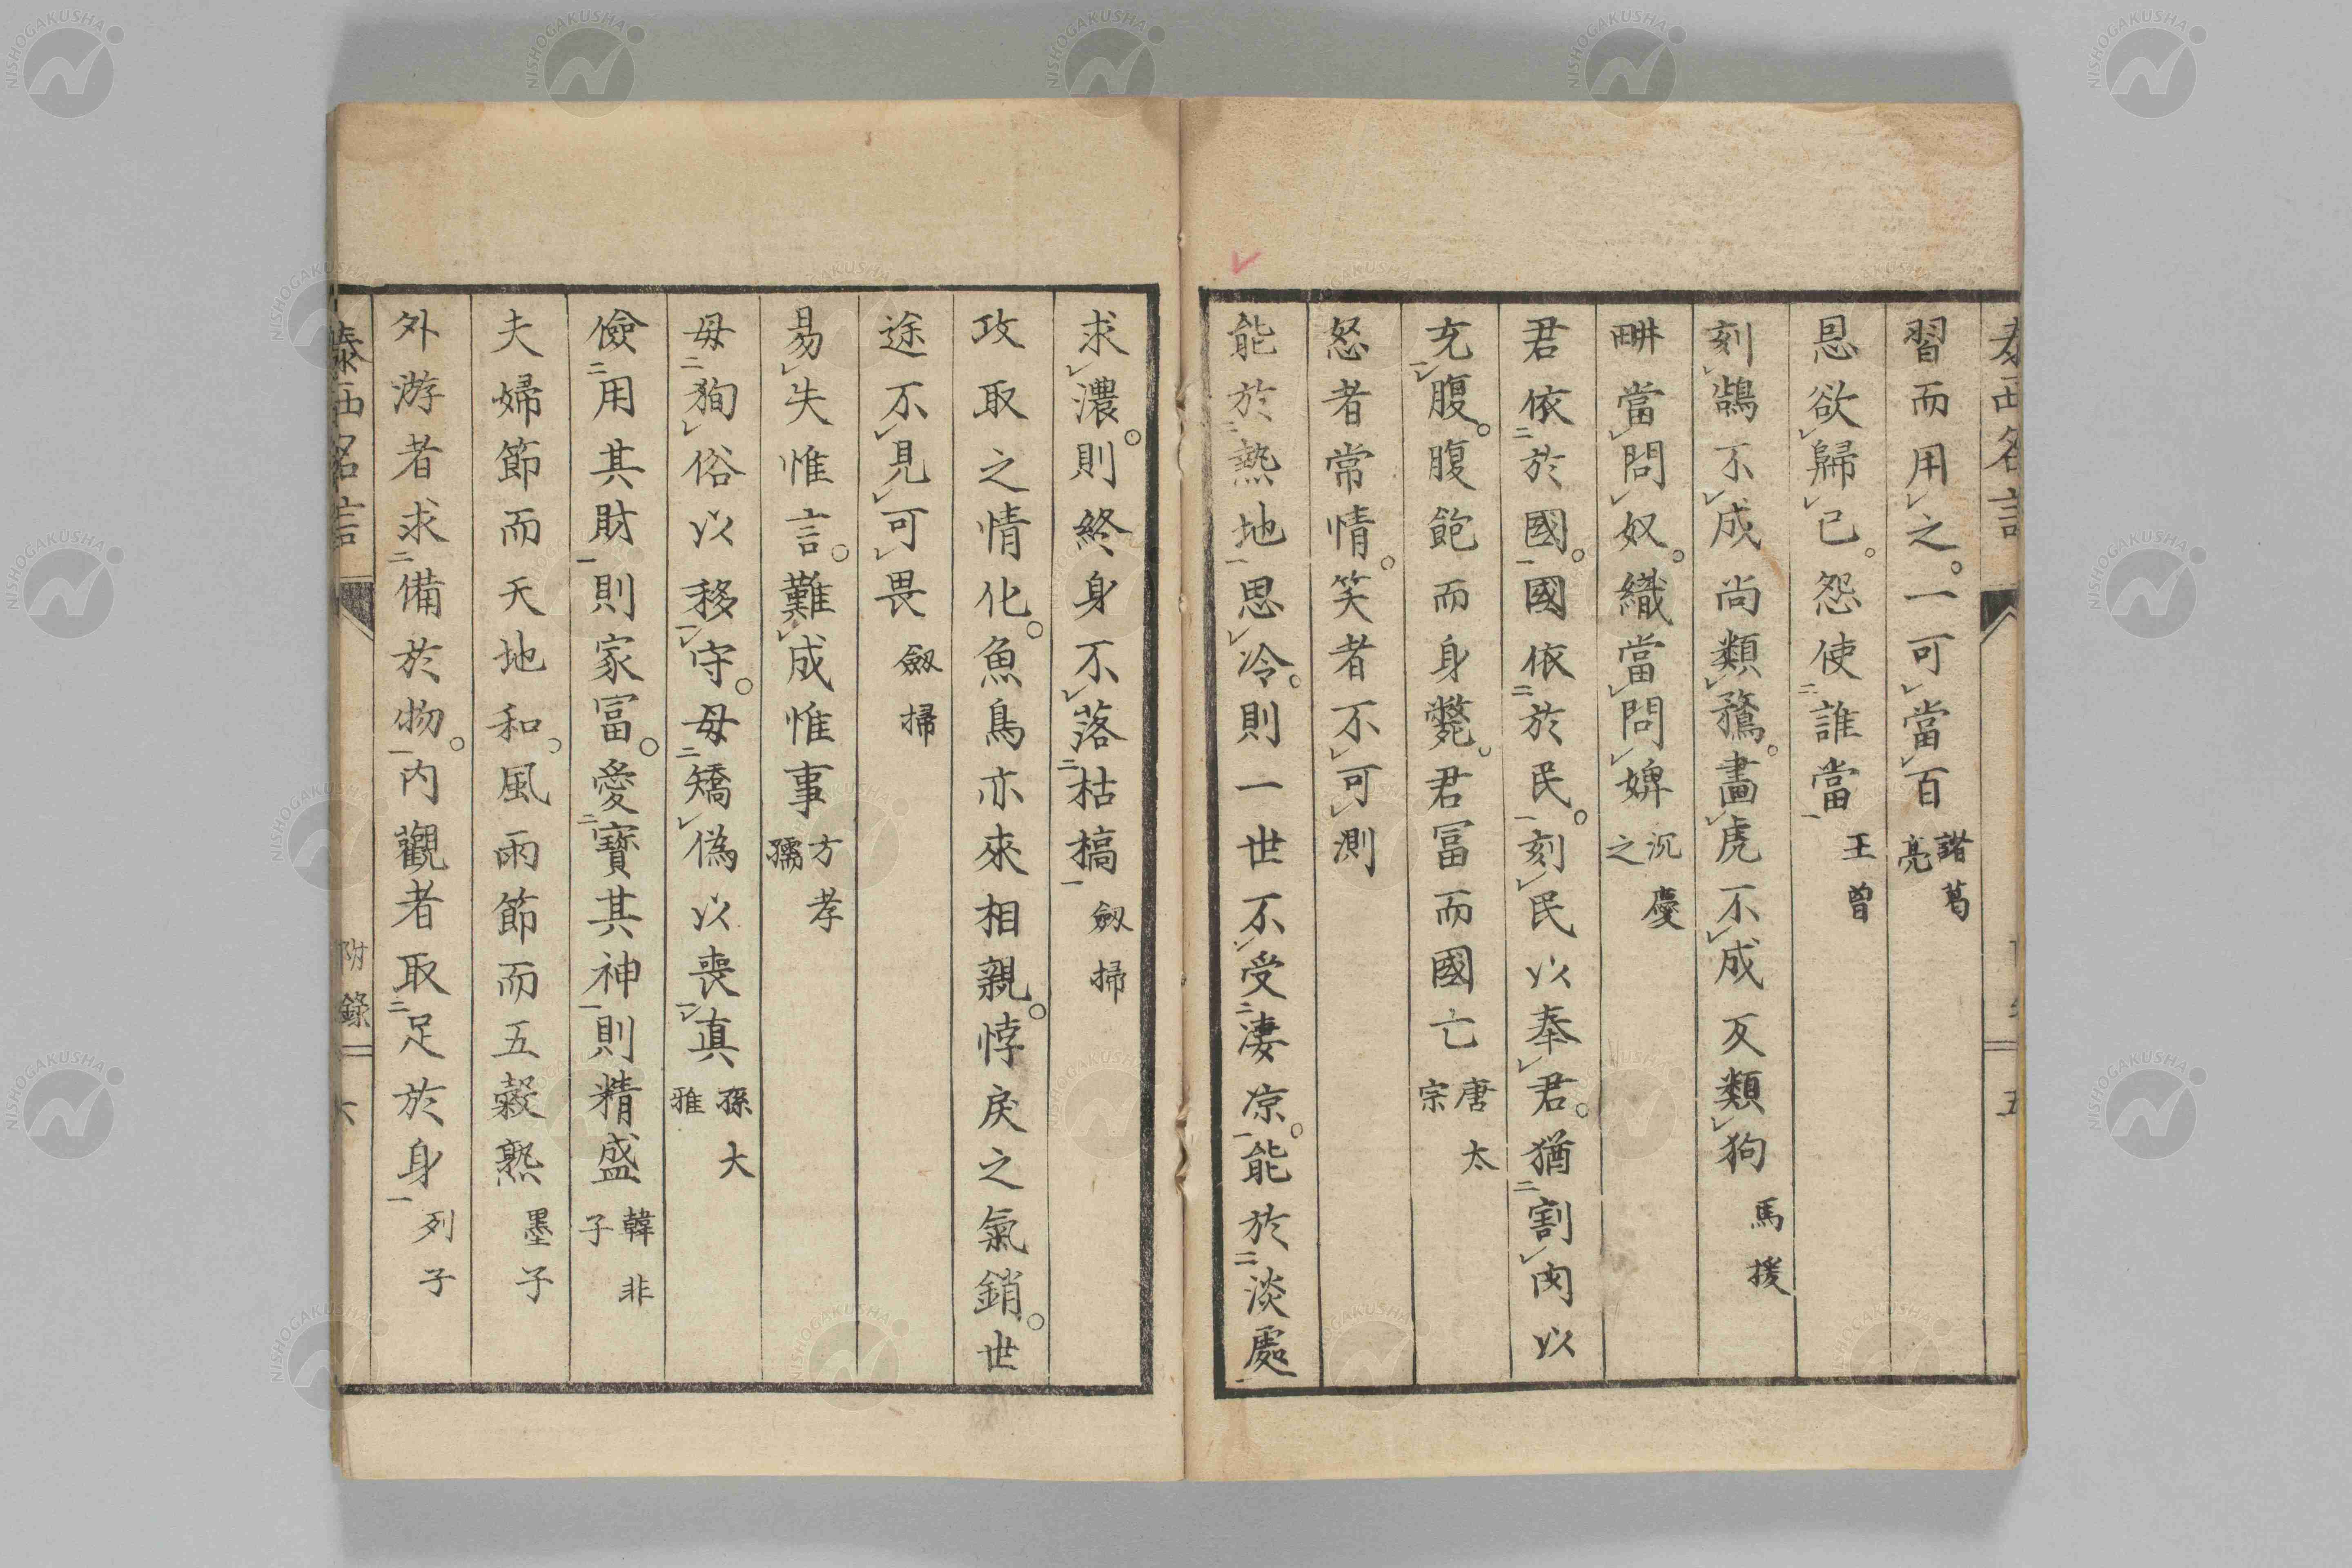 泰西名言
五
習而用之。一可當百 諸葛亮
恩欲歸己。怨使誰當 王曾
刻鵠不成尚類鶩。畫虎不成反類狗 馬援
畊當問奴。織當問婢 沉慶之
君依於國。國依於民。刻民以奉君。猶割肉以
充腹。腹飽而身斃。君冨而國亡 唐太宗
怒者常情。笑者不可測
能於熱地思冷。則一世不受淒凉。能於淡處
求濃。則終身不落枯槁 劔掃
攻取之情化。魚鳥亦來相親。悖戾之氣銷。世
途不見可畏 劔掃
易失惟言。難成惟事 方孝孺
毋狥俗以移守。毋矯偽以喪真 孫大雅
儉用其財則家冨。愛寶其神則精盛 韓非子
夫婦節而天地和。風雨節而五穀熟 墨子
外游者求備於物。内觀者取足於身 列子
泰西名言
附錄
六
NISHOGAKUSHA